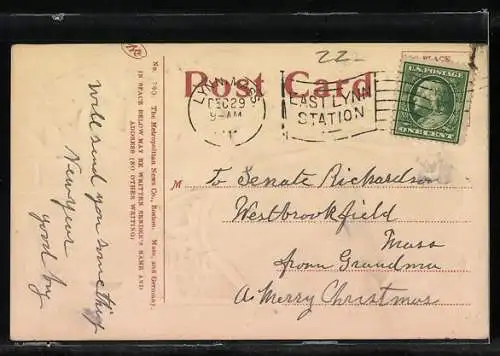 22
Post Card
PLACE
LYNN, MASS
DEC 29
9-AM
EAST LYNN
STATION
U.S. POSTAGE
ONE CENT
M to Senate Richardson
Westbrookfield
Mass
from Grandma
A Merry Christmas
No. The Metropolitan News Co., Boston, Mass. and Germany.
IN SPACE BELOW MAY BE WRITTEN SENDER'S NAME AND
ADDRESS (NO OTHER WRITING)
Will send you something
Newyear
good by